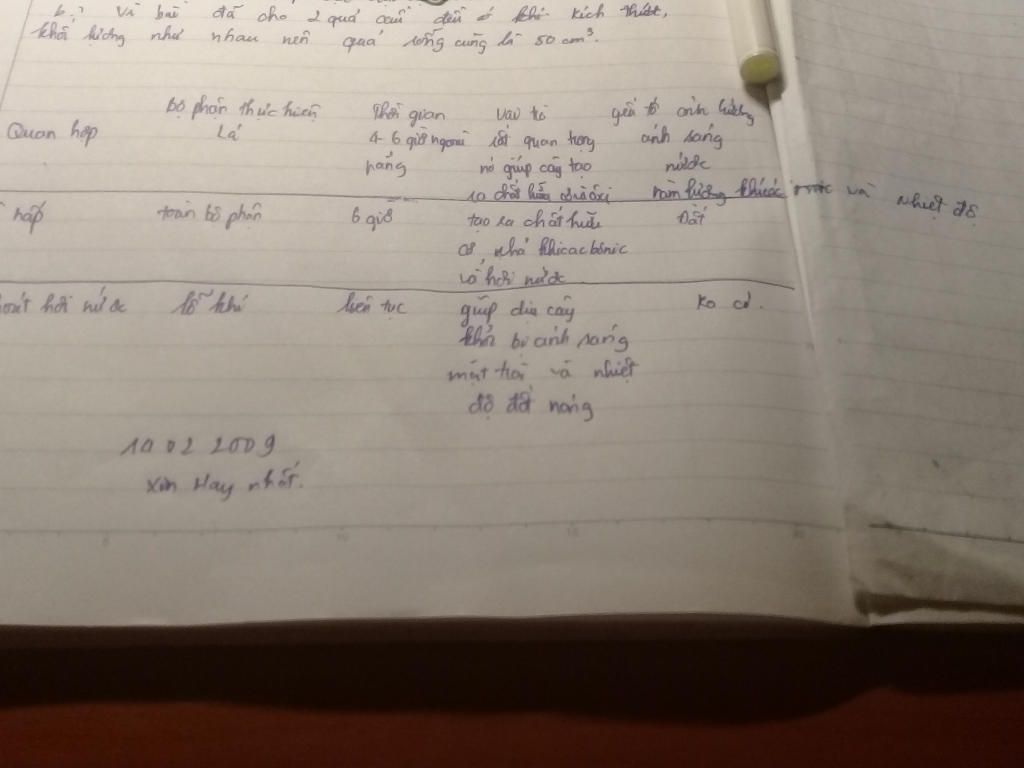 b, Vì bài đã cho 2 quả cầu đều có kích thước,
khối lượng như nhau nên quả rỗng cũng là 50 cm³.
Bộ phận thực hiện Thời gian vai trò yếu tố ảnh hưởng
Quan hợp Lá 4-6 giờ ngoài rất quan trọng ánh sáng
nắng nó giúp cây tạo nước
ra chất hữu hàm lượng khí và nhiệt độ
hấp toàn bộ phận 6 giờ tạo ra chất hữu Đất
cơ, nhả khí cacbônic
và hơi nước
hơi nước lỗ khí liên tục giúp cây Ko có.
khỏi bị ánh sáng
mặt trời và nhiệt
độ đốt nóng
10 02 2009
Xin Hay nhất.